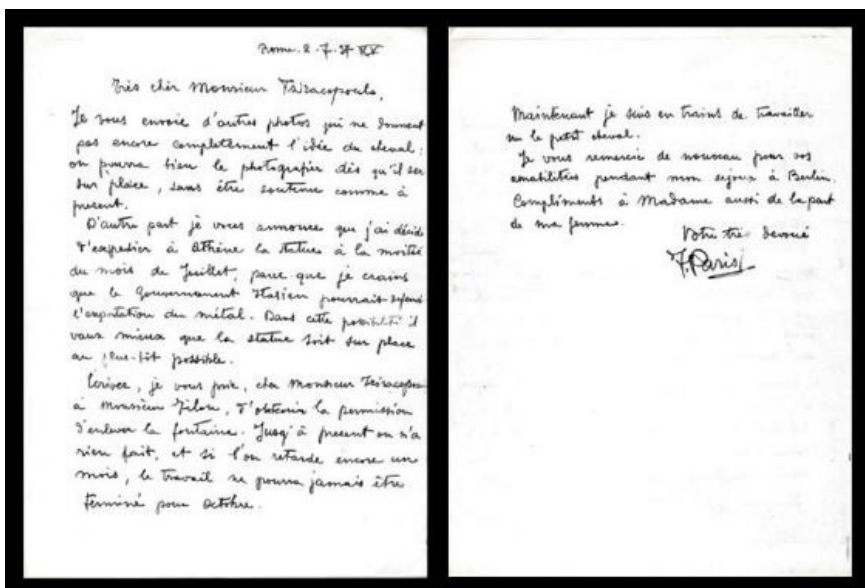 Rome. 2-7-37 XV
Très cher Monsieur Tsiracopoulo,
Je vous envoie d'autres photos qui ne donnent
pas encore completement l'idée du cheval:
on pourra bien le photografier dès qu'il ser
sur place, sans être soutenu comme à
present.
D'autre part je vous annonce que j'ai décidé
d'expedier à Athène la statue à la moitié
du mois de Juillet, parce que je crains
que le Gouvernement Italien pourrait
l'exportation du métal. Dans cette possibilité il
vaux mieux que la statue soit sur place
au plus-tôt possible.
Ecrivez, je vous prie, cher Monsieur
à Monsieur, d'obtenir la permission
d'enlever la fontaine. Jusq'à present on n'a
rien fait, et si l'on retarde encore un
mois, le travail ne pourra jamais être
terminé pour Octobre.
Maintenant je suis en trains de travailler
su le petit cheval.
Je vous remercie de nouveau pour vos
amabilitées pendant mon sejour à Berlin.
Compliments à Madame aussi de la part
de ma femme.
Votre très devoué
F. Parisi